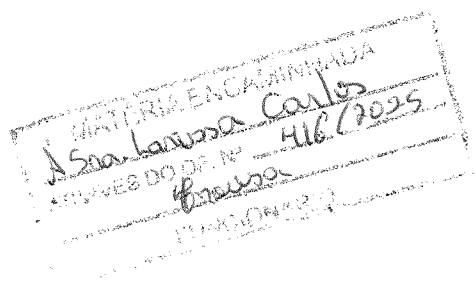 MATÉRIA ENCAMINHADA
À Sra. Larissa Carlos
ATRAVÉS DO OF. Nº 416/2025
FUNCIONÁRIO